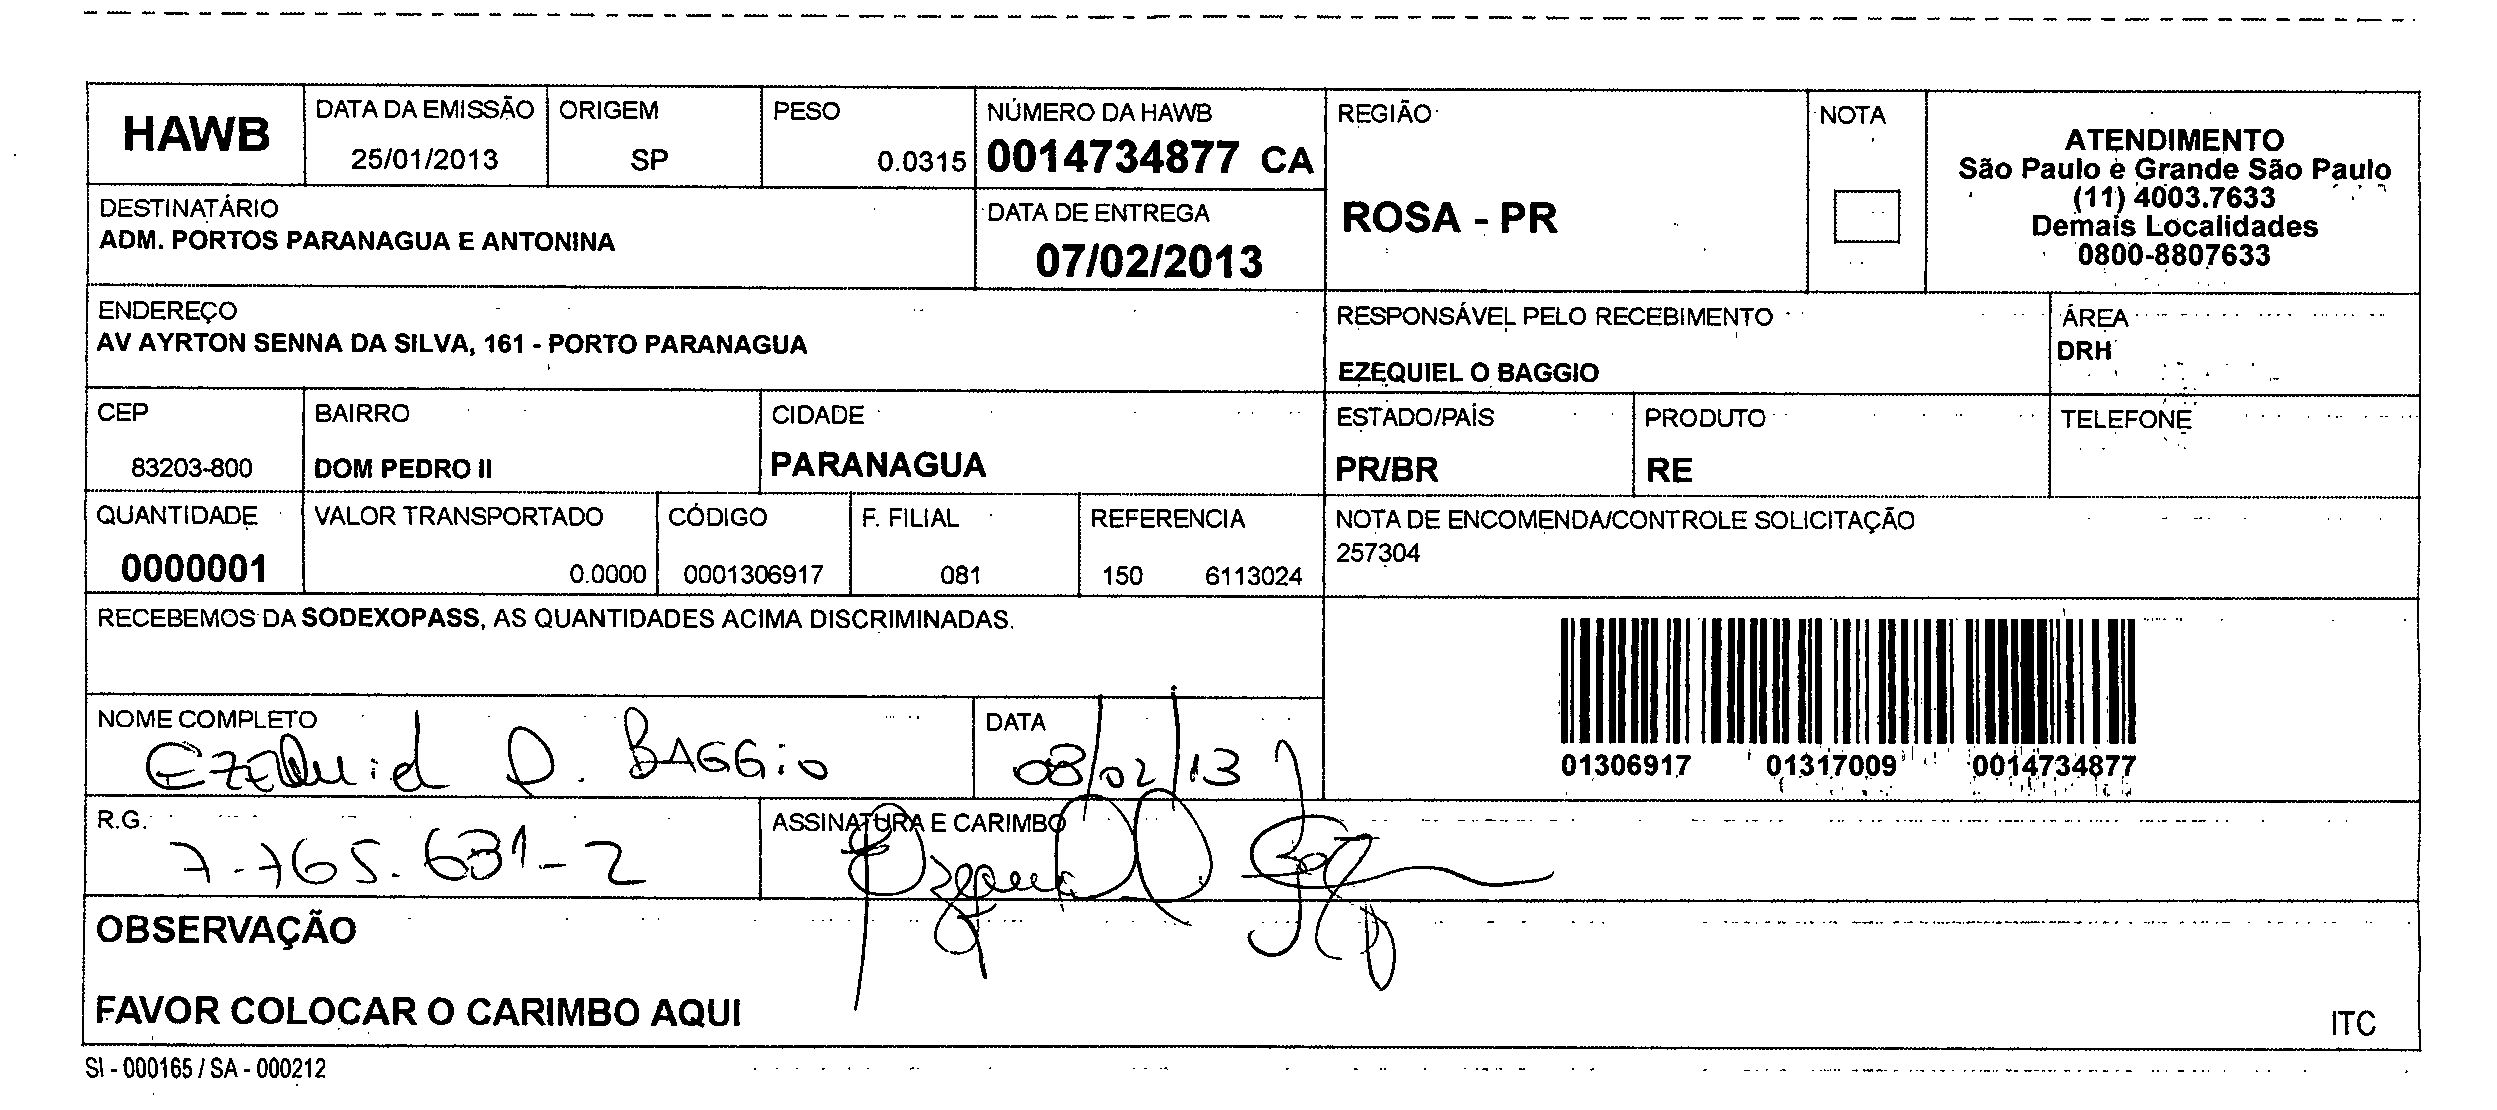 HAWB
DATA DA EMISSÃO
25/01/2013
ORIGEM
SP
PESO
0.0315
NÚMERO DA HAWB
0014734877 CA
REGIÃO
ROSA - PR
NOTA
ATENDIMENTO
São Paulo e Grande São Paulo
(11) 4003.7633
Demais Localidades
0800-8807633
DESTINATÁRIO
ADM. PORTOS PARANAGUA E ANTONINA
DATA DE ENTREGA
07/02/2013
ENDEREÇO
AV AYRTON SENNA DA SILVA, 161 - PORTO PARANAGUA
RESPONSÁVEL PELO RECEBIMENTO
EZEQUIEL O BAGGIO
ÁREA
DRH
CEP
83203-800
BAIRRO
DOM PEDRO II
CIDADE
PARANAGUA
ESTADO/PAÍS
PR/BR
PRODUTO
RE
TELEFONE
QUANTIDADE
0000001
VALOR TRANSPORTADO
0.0000
CÓDIGO
0001306917
F. FILIAL
081
REFERENCIA
150 6113024
NOTA DE ENCOMENDA/CONTROLE SOLICITAÇÃO
257304
RECEBEMOS DA SODEXOPASS, AS QUANTIDADES ACIMA DISCRIMINADAS.
01306917 01317009 0014734877
NOME COMPLETO
Ezequiel O. BAGGio
DATA
08/02/13
R.G.
7.765.631-2
ASSINATURA E CARIMBO
OBSERVAÇÃO
FAVOR COLOCAR O CARIMBO AQUI
ITC
SI - 000165 / SA - 000212